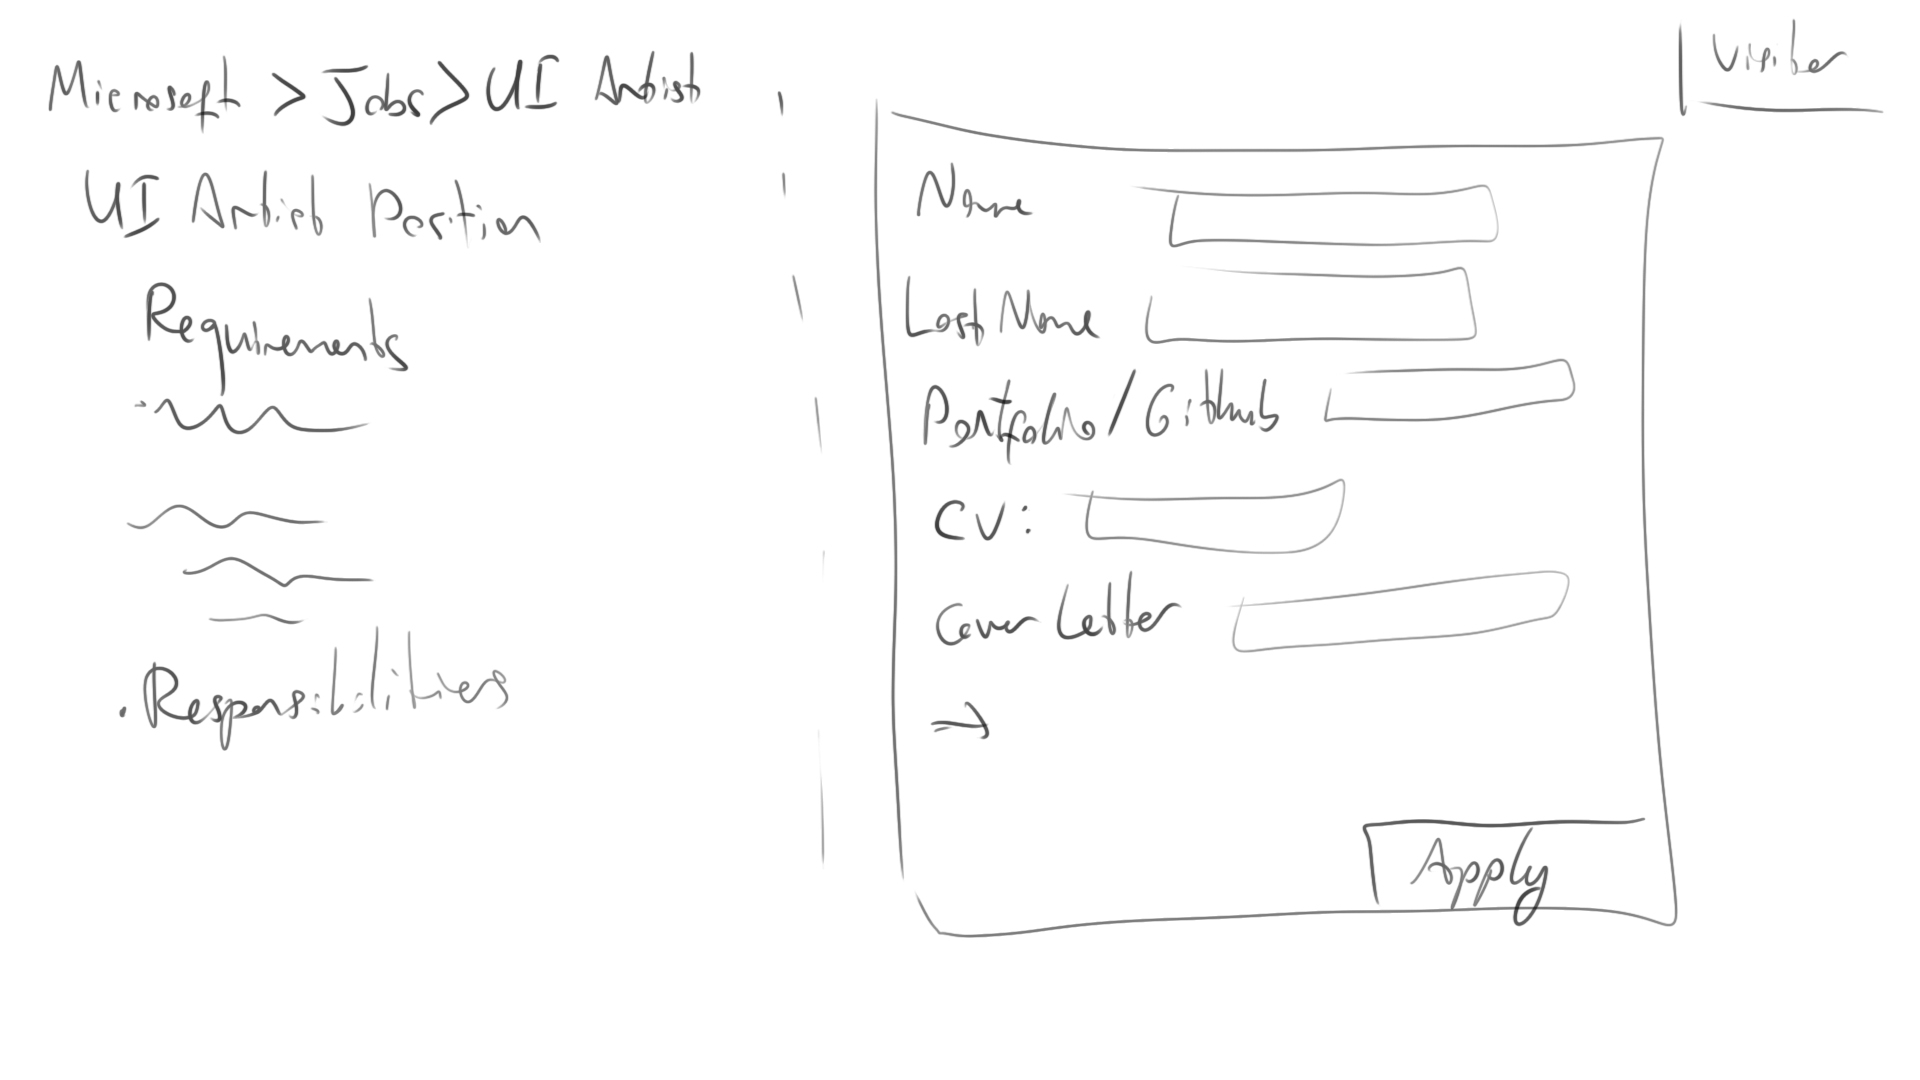 Microsoft > Jobs > UI Artist
Visitor
UI Artist Position
Requirements
. Responsibilities
Name
Last Name
Portfolio / Github
CV:
Cover Letter
→
Apply